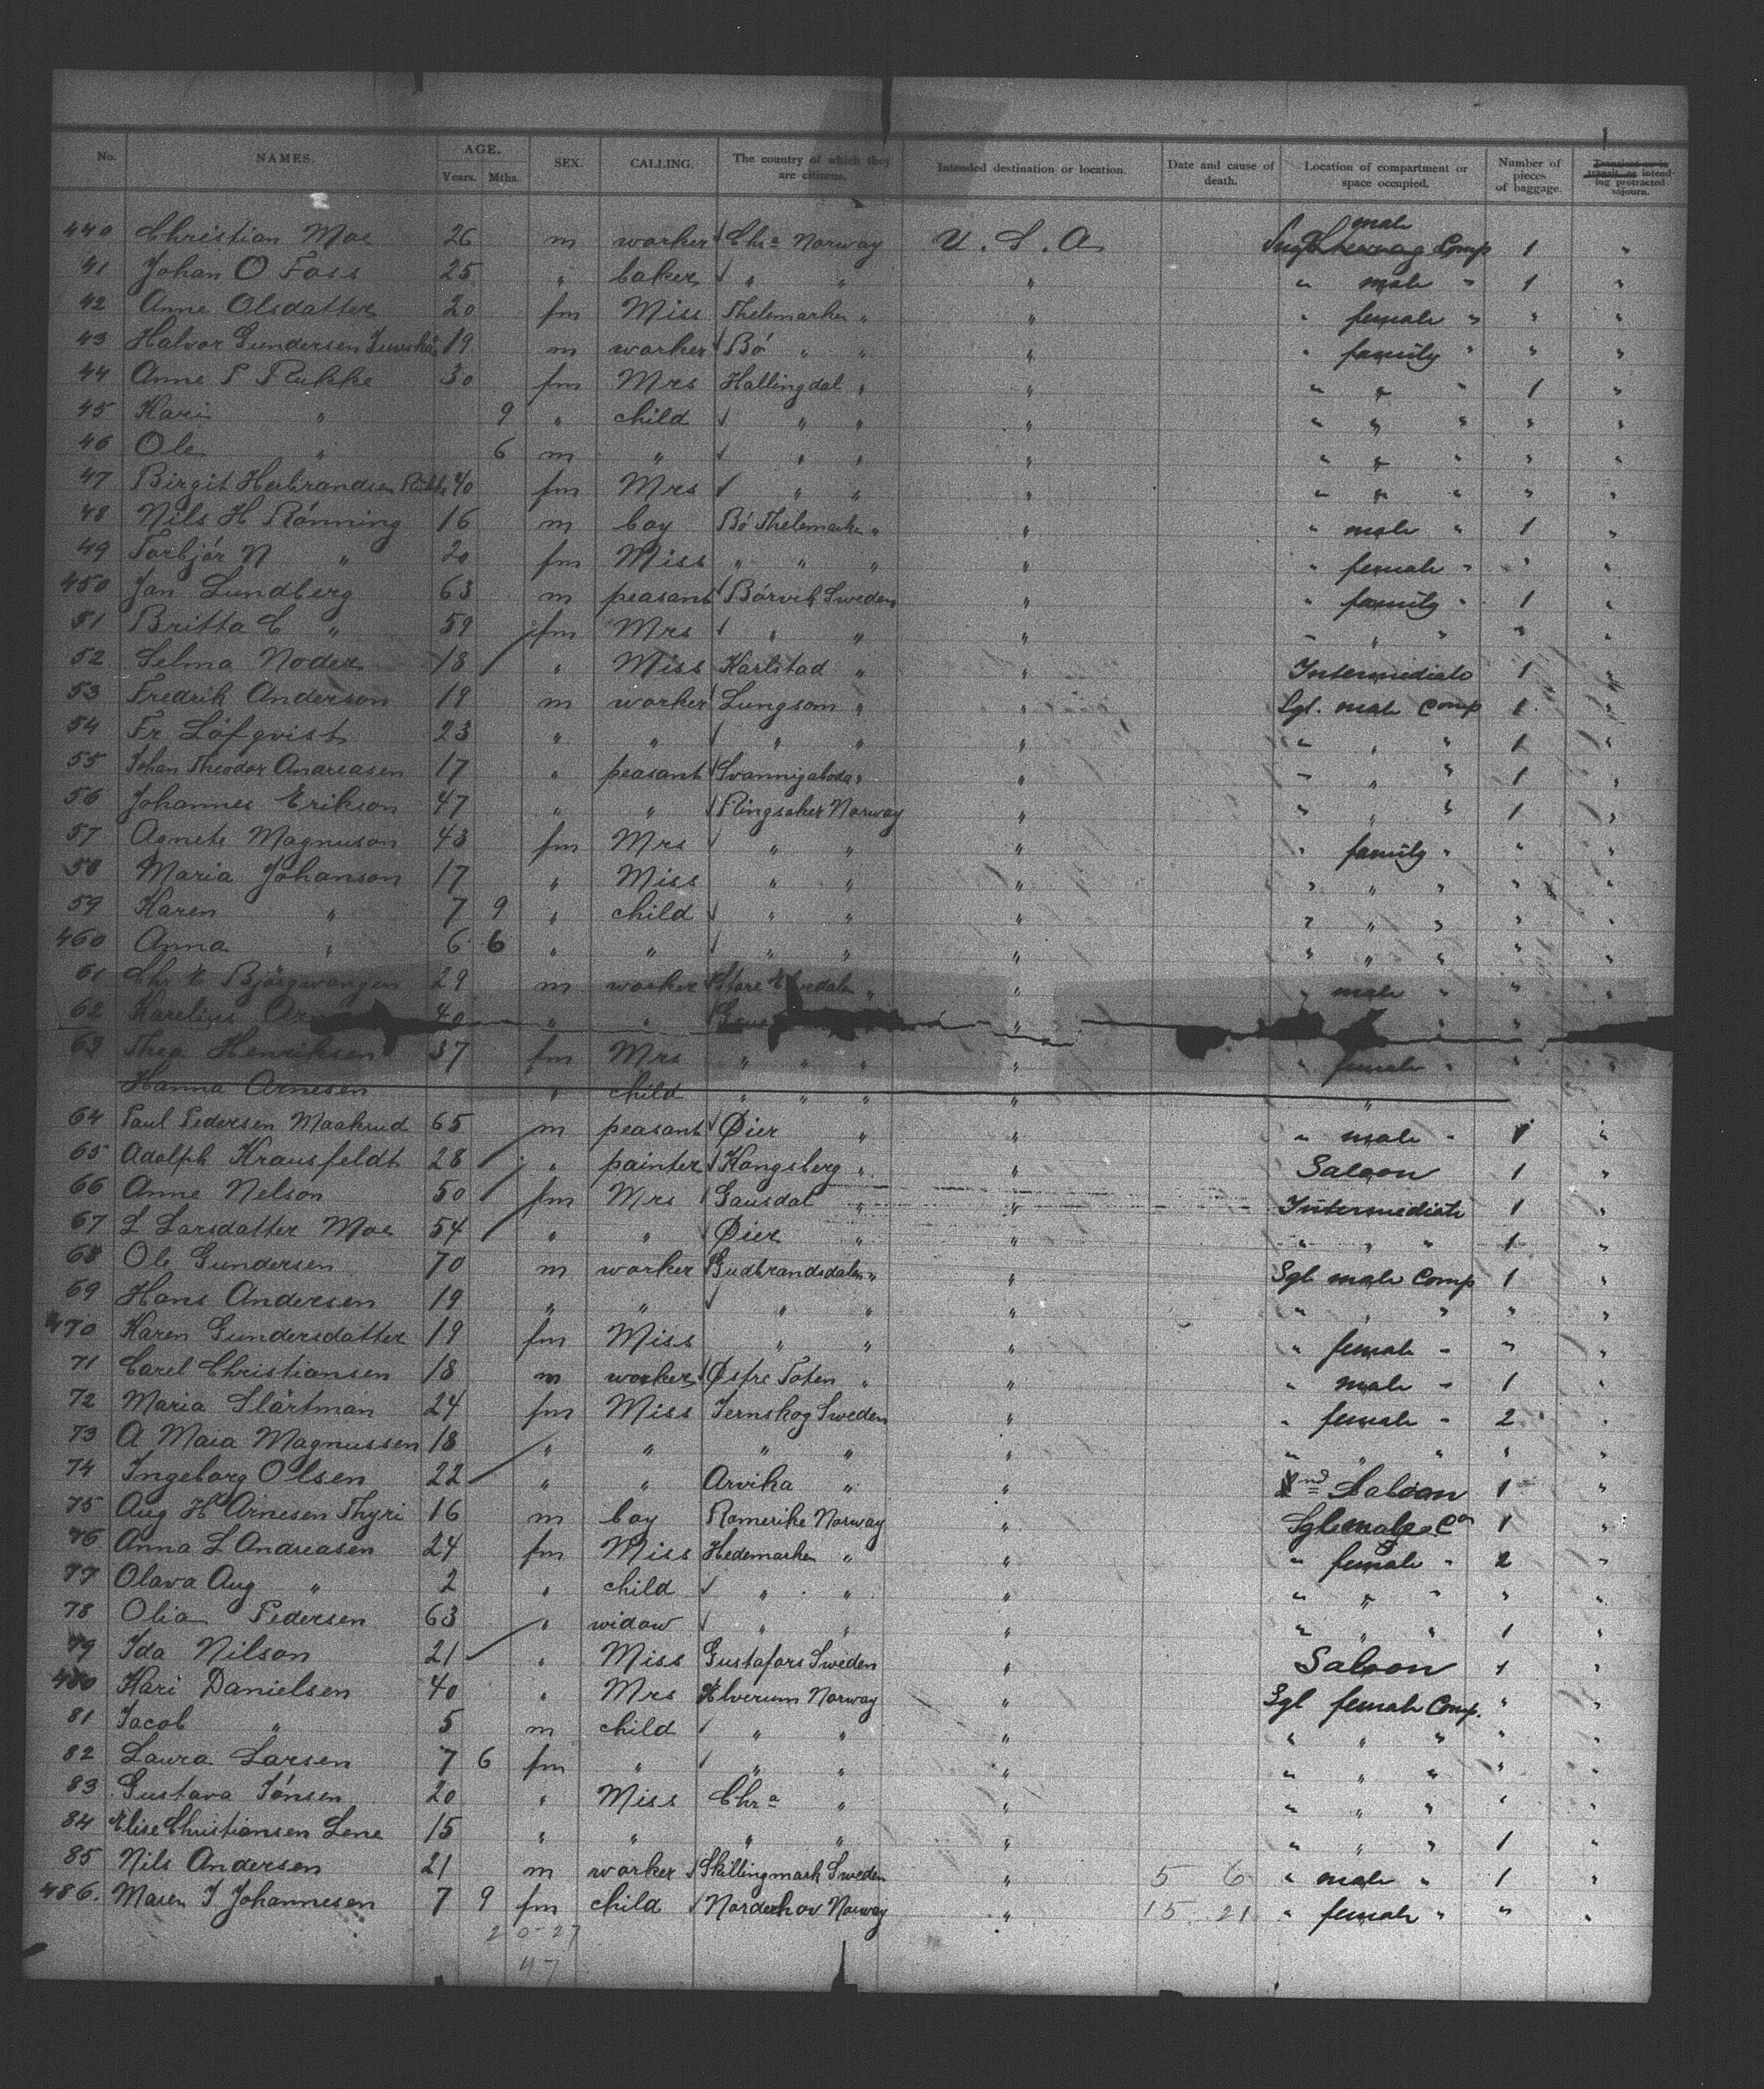 No. NAMES. AGE. Years. Mths. SEX. CALLING. The country of which they are citizens. Intended destination or location. Date and cause of death. Location of compartment or space occupied. Number of pieces of baggage. Transient or in transit, or intending protracted sojourn.
440 Christian Moe 26 m worker Chra Norway U. S. A male Comp 1 "
41 Johan O Foss 25 " baker " " " " male " 1 "
42 Anne Olsdatter 20 fm Miss Thelemarken " " " female " " "
43 Halvor Gundersen 19 m worker Bö " " " " family " " "
44 Anne P Rukke 30 fm Mrs Hallingdal " " " " " 1 "
45 Kari " 9 " child " " " " " " " "
46 Ole " 6 m " " " " " " " " "
47 Birgit Herbrandsen 40 fm Mrs " " " " " " " "
48 Nils H Rönning 16 m boy Bö Thelemarken " " " male " 1 "
49 Torbjör N " 20 fm Miss " " " " " female " " "
450 Jan Lundberg 63 m peasant Börvik Sweden " " family " 1 "
51 Britta C " 59 fm Mrs " " " " " " " "
52 Selma Noder 18 " Miss Karlstad " " Intermediate 1 "
53 Fredrik Anderson 19 m worker Lungsom " " Sgl. male Comp 1 "
54 Fr Löfqvist 23 " " " " " " " " 1 "
55 Johan Theodor Andreasen 17 " peasant " " " " " 1 "
56 Johannes Erikson 47 " " Ringsaker Norway " " " " 1 "
57 Agnete Magnuson 43 fm Mrs " " " " family " " "
58 Maria Johanson 17 " Miss " " " " " " " "
59 Karen " 7 9 " child " " " " " " " "
460 Anna " 6 6 " " " " " " " " " "
61 Chr E Björgwangen 29 m worker Store " " " male " " "
62 Karelius 40 " " " " "
63 Thea Henriksen 37 fm Mrs " " " " " female " " "
Hanna Arnesen " child " " " " "
64 Paul Pedersen Maakrud 65 m peasant Øier " " " male " 1 "
65 Adolph Krausfeldt 28 " painter Kongsberg " " Saloon 1 "
66 Anne Nelson 50 fm Mrs Gausdal " " Intermediate 1 "
67 L Larsdatter Moe 54 " " Øier " " " " " 1 "
68 Ole Gundersen 70 m worker Gudbrandsdalen " " Sgl male Comp 1 "
69 Hans Andersen 19 " " " " " " " " " "
470 Karen Gundersdatter 19 fm Miss " " " " female " " "
71 Carel Christiansen 18 m worker Østre Toten " " " male " 1 "
72 Maria Slärtman 24 fm Miss Jernskog Sweden " " female " 2 "
73 A Maia Magnussen 18 " " " " " " " " " "
74 Ingeborg Olsen 22 " " Arvika " " nd Saloon 1 "
75 Aug H Arnesen Thyri 16 m boy Romerike Norway " Sgle male Co 1 "
76 Anna L Andreasen 24 fm Miss Hedemarken " " " female " 2 "
77 Olava Aug " 2 " child " " " " " " " "
78 Olia Pedersen 63 " widow " " " " " " 1 "
79 Ida Nilson 21 " Miss Gustafors Sweden " Saloon 1 "
480 Kari Danielsen 40 " Mrs Elverum Norway " Sgl female Comp. " "
81 Jacob " 5 m child " " " " " " " "
82 Laura Larsen 7 6 fm " " " " " " " " "
83 Gustava Jónsen 20 " Miss Chra " " " " " " "
84 Elise Christiansen Lene 15 " " " " " " " " 1 "
85 Nils Andersen 21 m worker Skillingmark Sweden " 5 6 " male " 1 "
486. Maren J Johannesen 7 9 fm child Norderhov Norway " 15 21 " female " " "
20 27
47